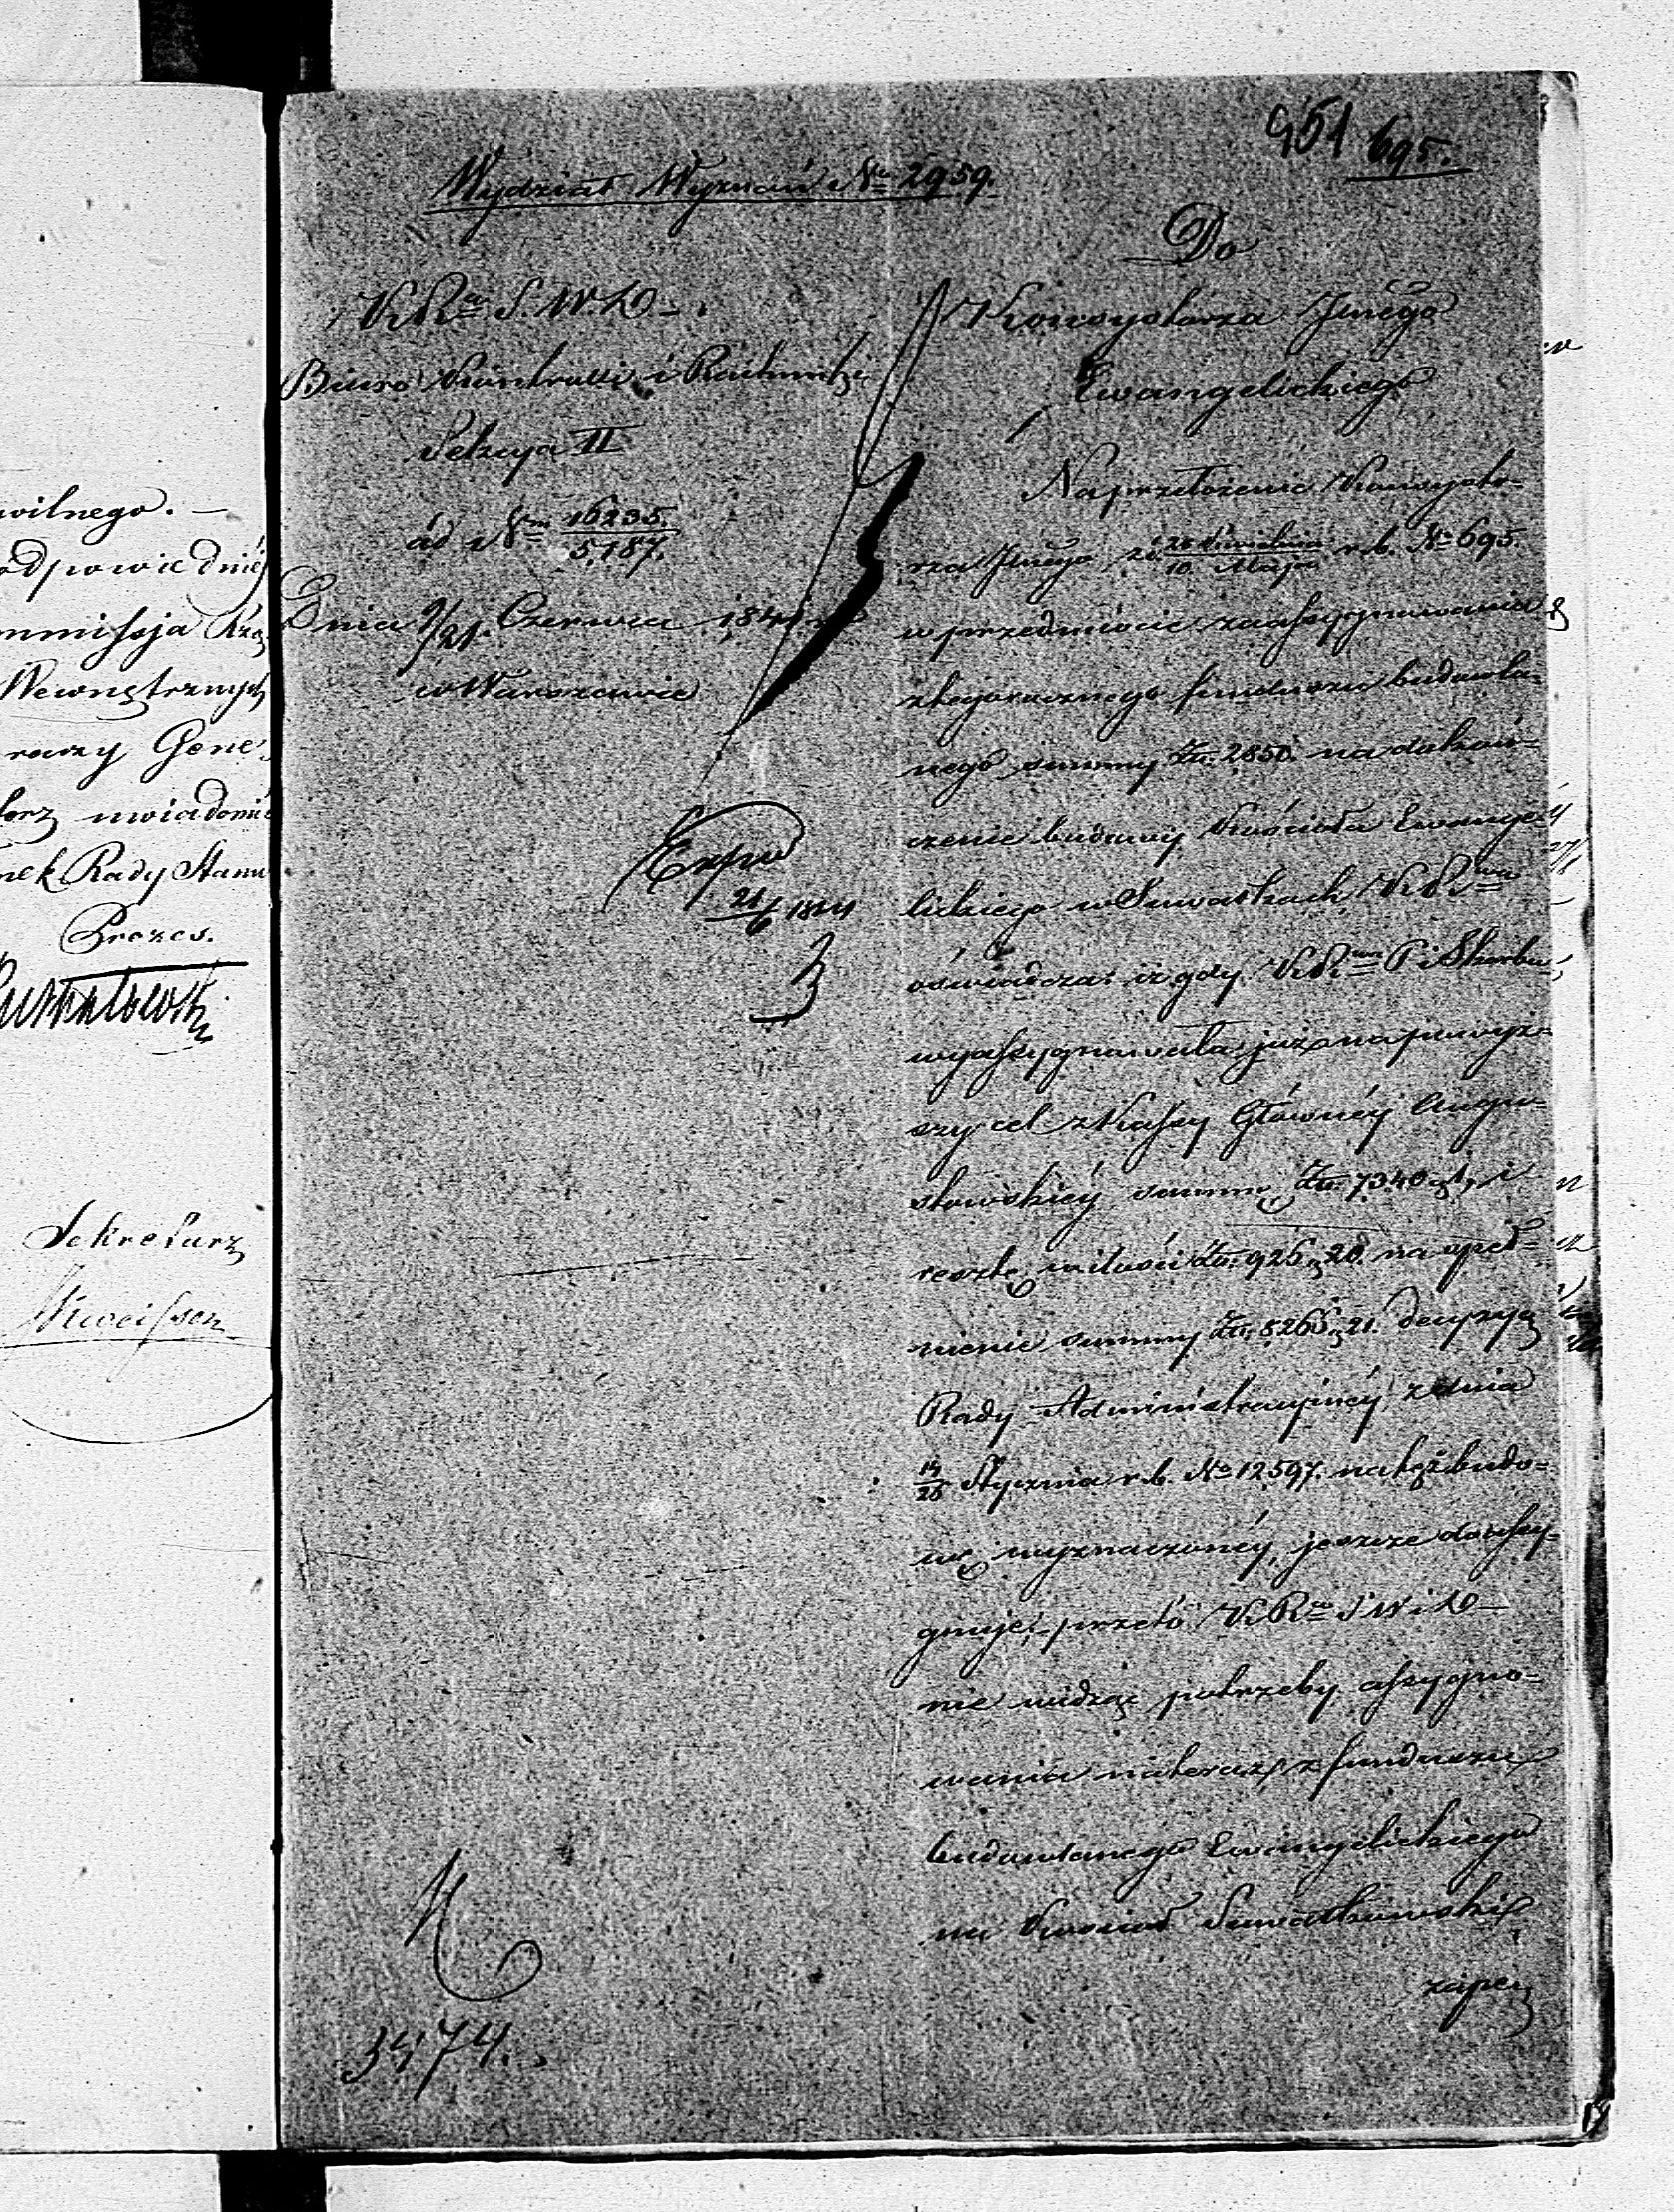 wilnego. —
odpowiedniej
ommissja Rzą
Wewnętrznych
raczy Gene
torz uwiadomić
nek Rady Stanu
Prezes.
Sekretarz
451 695.
Wydział Wyznań No 2959.
KRa S.W.D.
Biuro Kontrolli i Rachuby
Sekcya II
ad Nrm 16235/5187.
Dnia 9/21 Czerwca 1841 r.
w Warszawie
Expd
21/6 1841
3474.
Do
Konsystorza Jnego
Ewangelickiego
Na przełożenie Konsysto-
rza Jnego z d. 28 Kwietnia/10 Maja r.b. No 695.
w przedmiocie zaassygnowania
z tegorocznego funduszu budowla-
nego summy Złt. 2850. na dokoń-
czenie budowy Kościoła Ewange-
lickiego w Suwałkach, KRwa
oświadcza: iż gdy KRwa P i Skarbu
wyassygnowała już na powyż-
szy cel z Kassy Głównéj Augu-
stowskiéj summę Złt. 7340 1, i
resztę w ilości Złt. 925, 20. na speł-
nienie summy Złt. 8265, 21. decyzyą
Rady Administracyjnéj z dnia
14/26 Stycznia r.b. No 12597. na tęż budo-
wę wyznaczonéj, jeszcze doassy-
gnuje; przeto KRa S W i D —
nie widząc potrzeby assygno-
wania na teraz z funduszu
budowlanego Ewangelickiego
na Kościoł Suwałkowski
zape